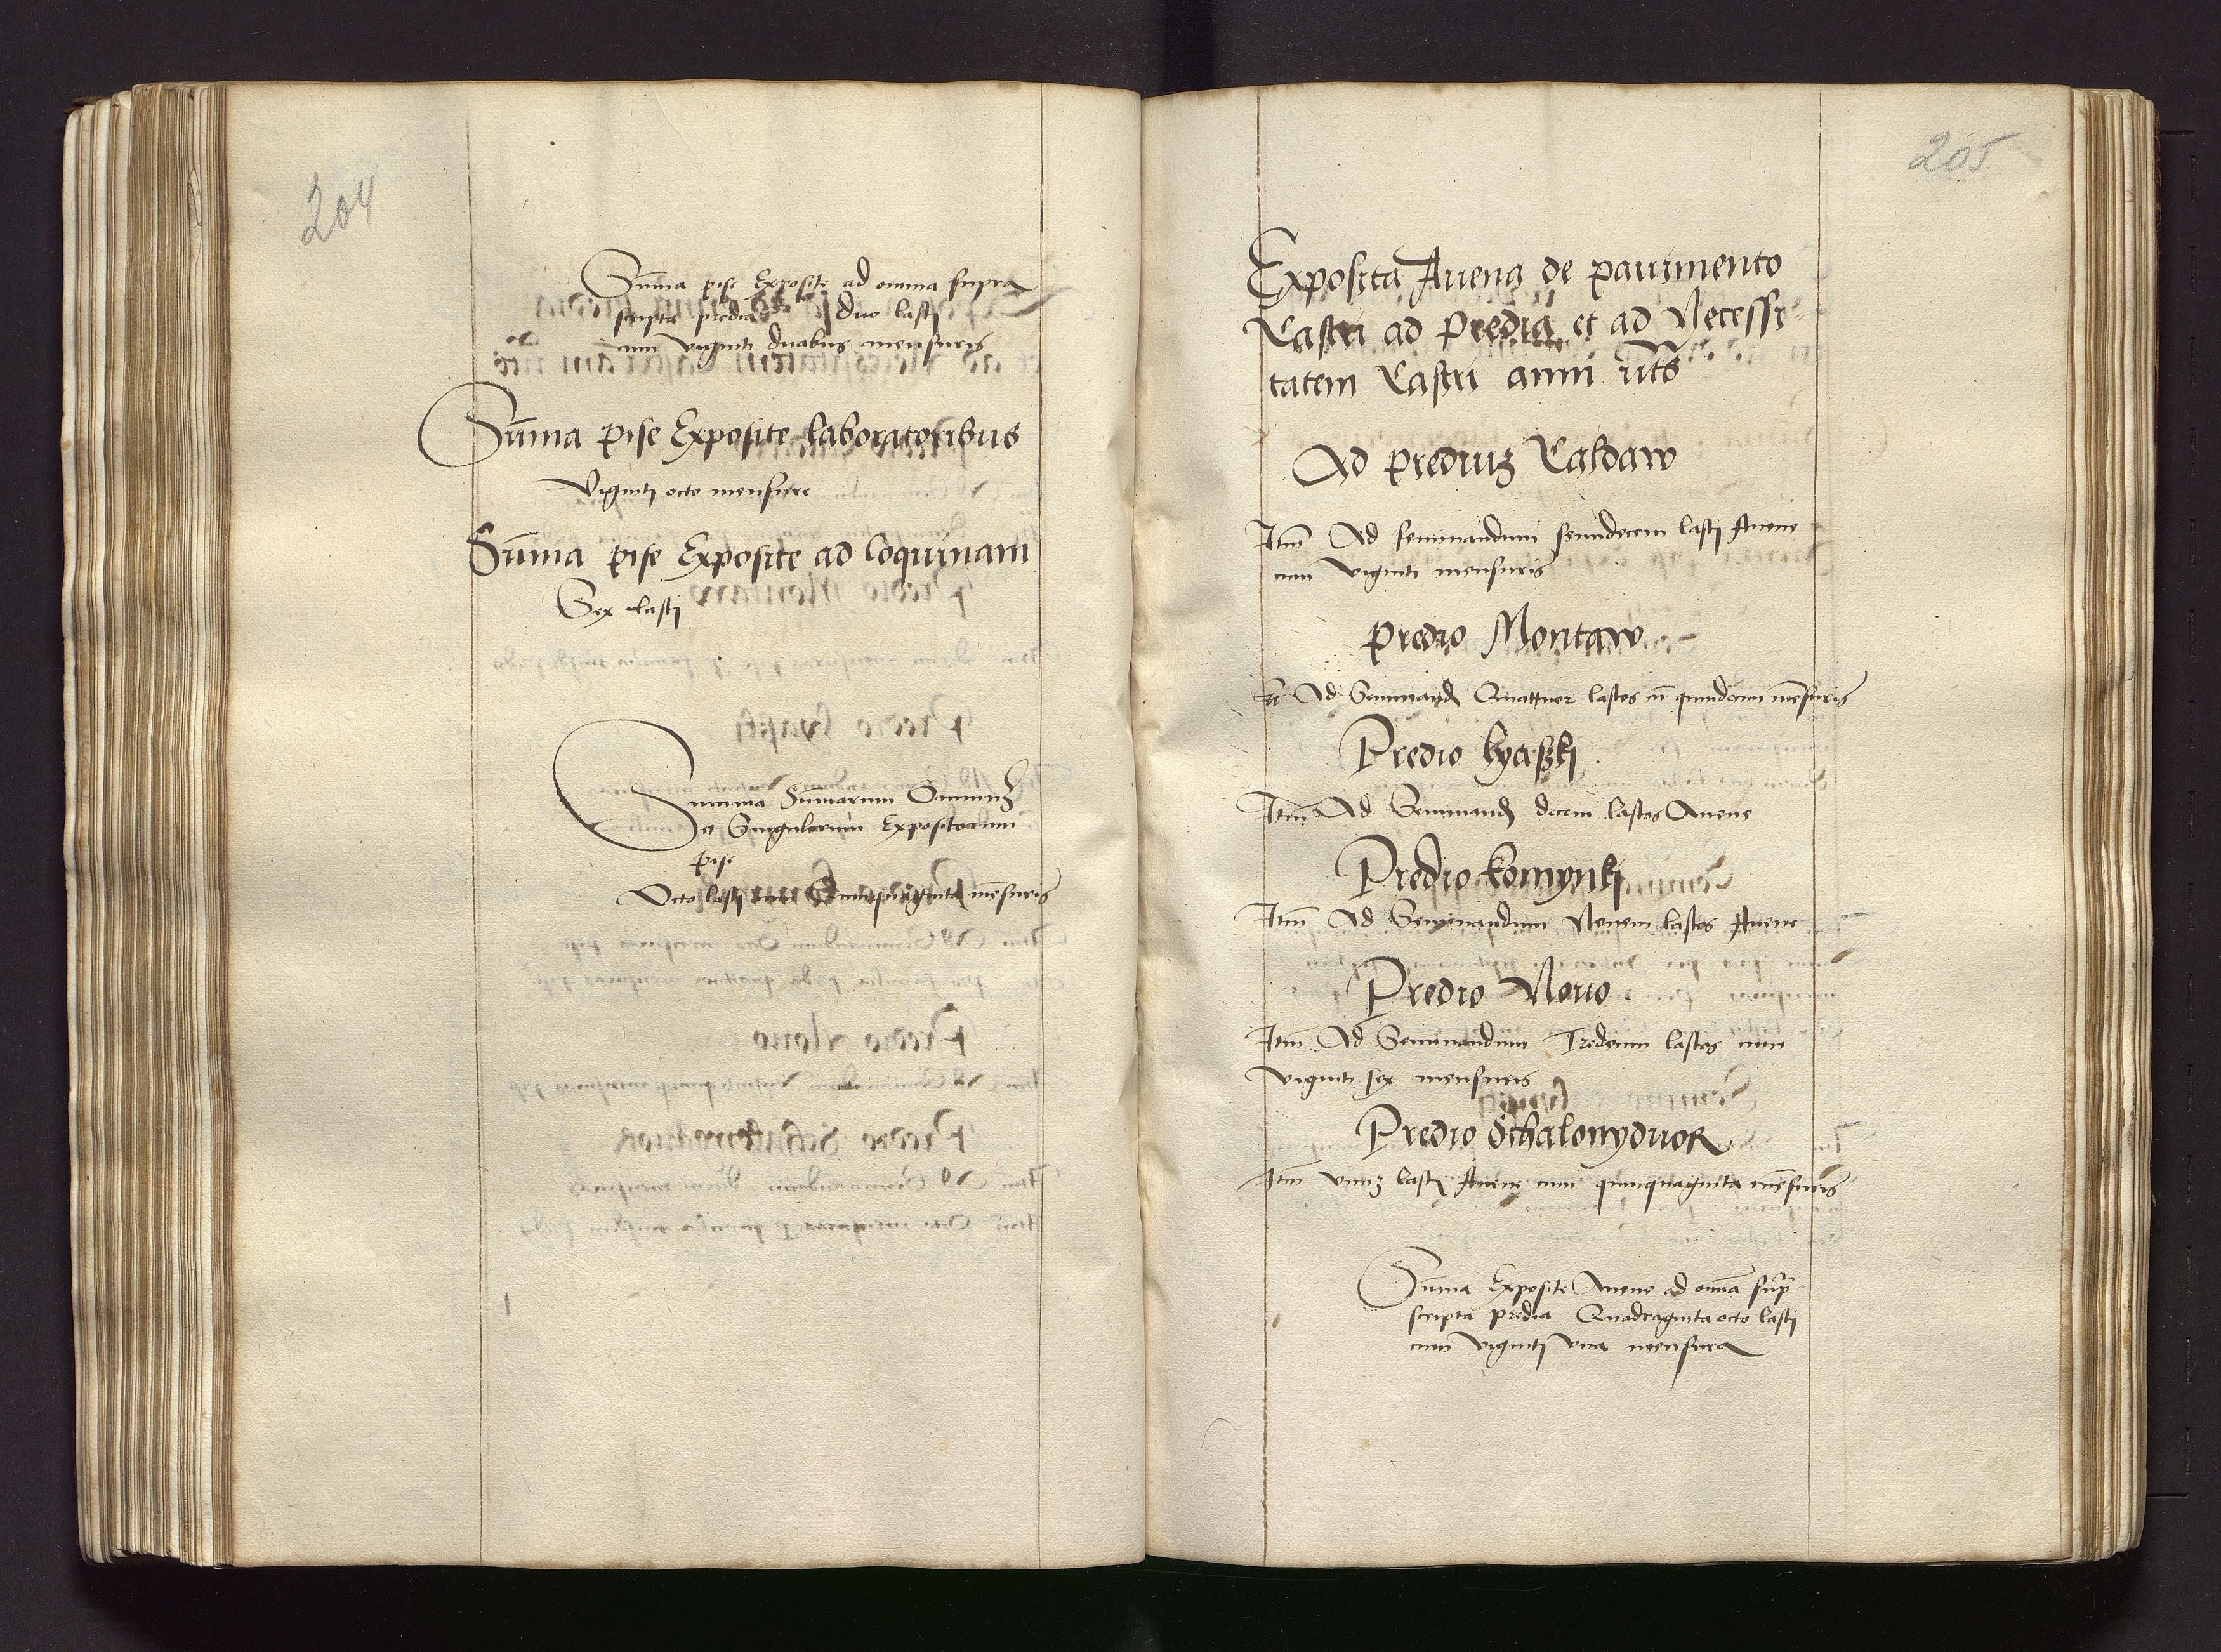 204
Sum̄a pise Exposite ad omnia supra
scripta predia duo lastj
cum vigintj duabus mensuris
Sum̄a pise Exposite laboratoribus
Vigintj octo mensure
Sum̄a pise Exposite ad Coquinam
Sex lastj
Summa Sum̄arum Omniuꝫ
et Singulorum Expositorum
pise
Octo lastj cum Quinquaginta mēsuris
205
Exposita Auena de pauimento
Castri ad predia et ad Necessi
tatem Castri anni ut s̄
Ad prediuꝫ Caldaw
Itm̄ Ad seminandum sexndecem lastj Auene
cum viginti mensuris
predio Montaw
It̄ Ad Seminand Quattuor lastos cū quindecim mēsuris
Predio hyaßkj
Itm̄ Ad Seminand decem lastos Auene
Predio komynkj
Itm̄ Ad Seminandum Nouem lastos Auene
Predio Nouo
Itm̄ Ad Seminandum Tredecim lastos cum
viginti sex mensuris
Predio Schalonyduor
Itm̄ vnuꝫ lastj Auene cum quinquaginta mēsuris
Sum̄a Exposite Auene ad om̄ia sup̄
scripta predia Quadraginta octo lastj
cum vigintj vna mensura